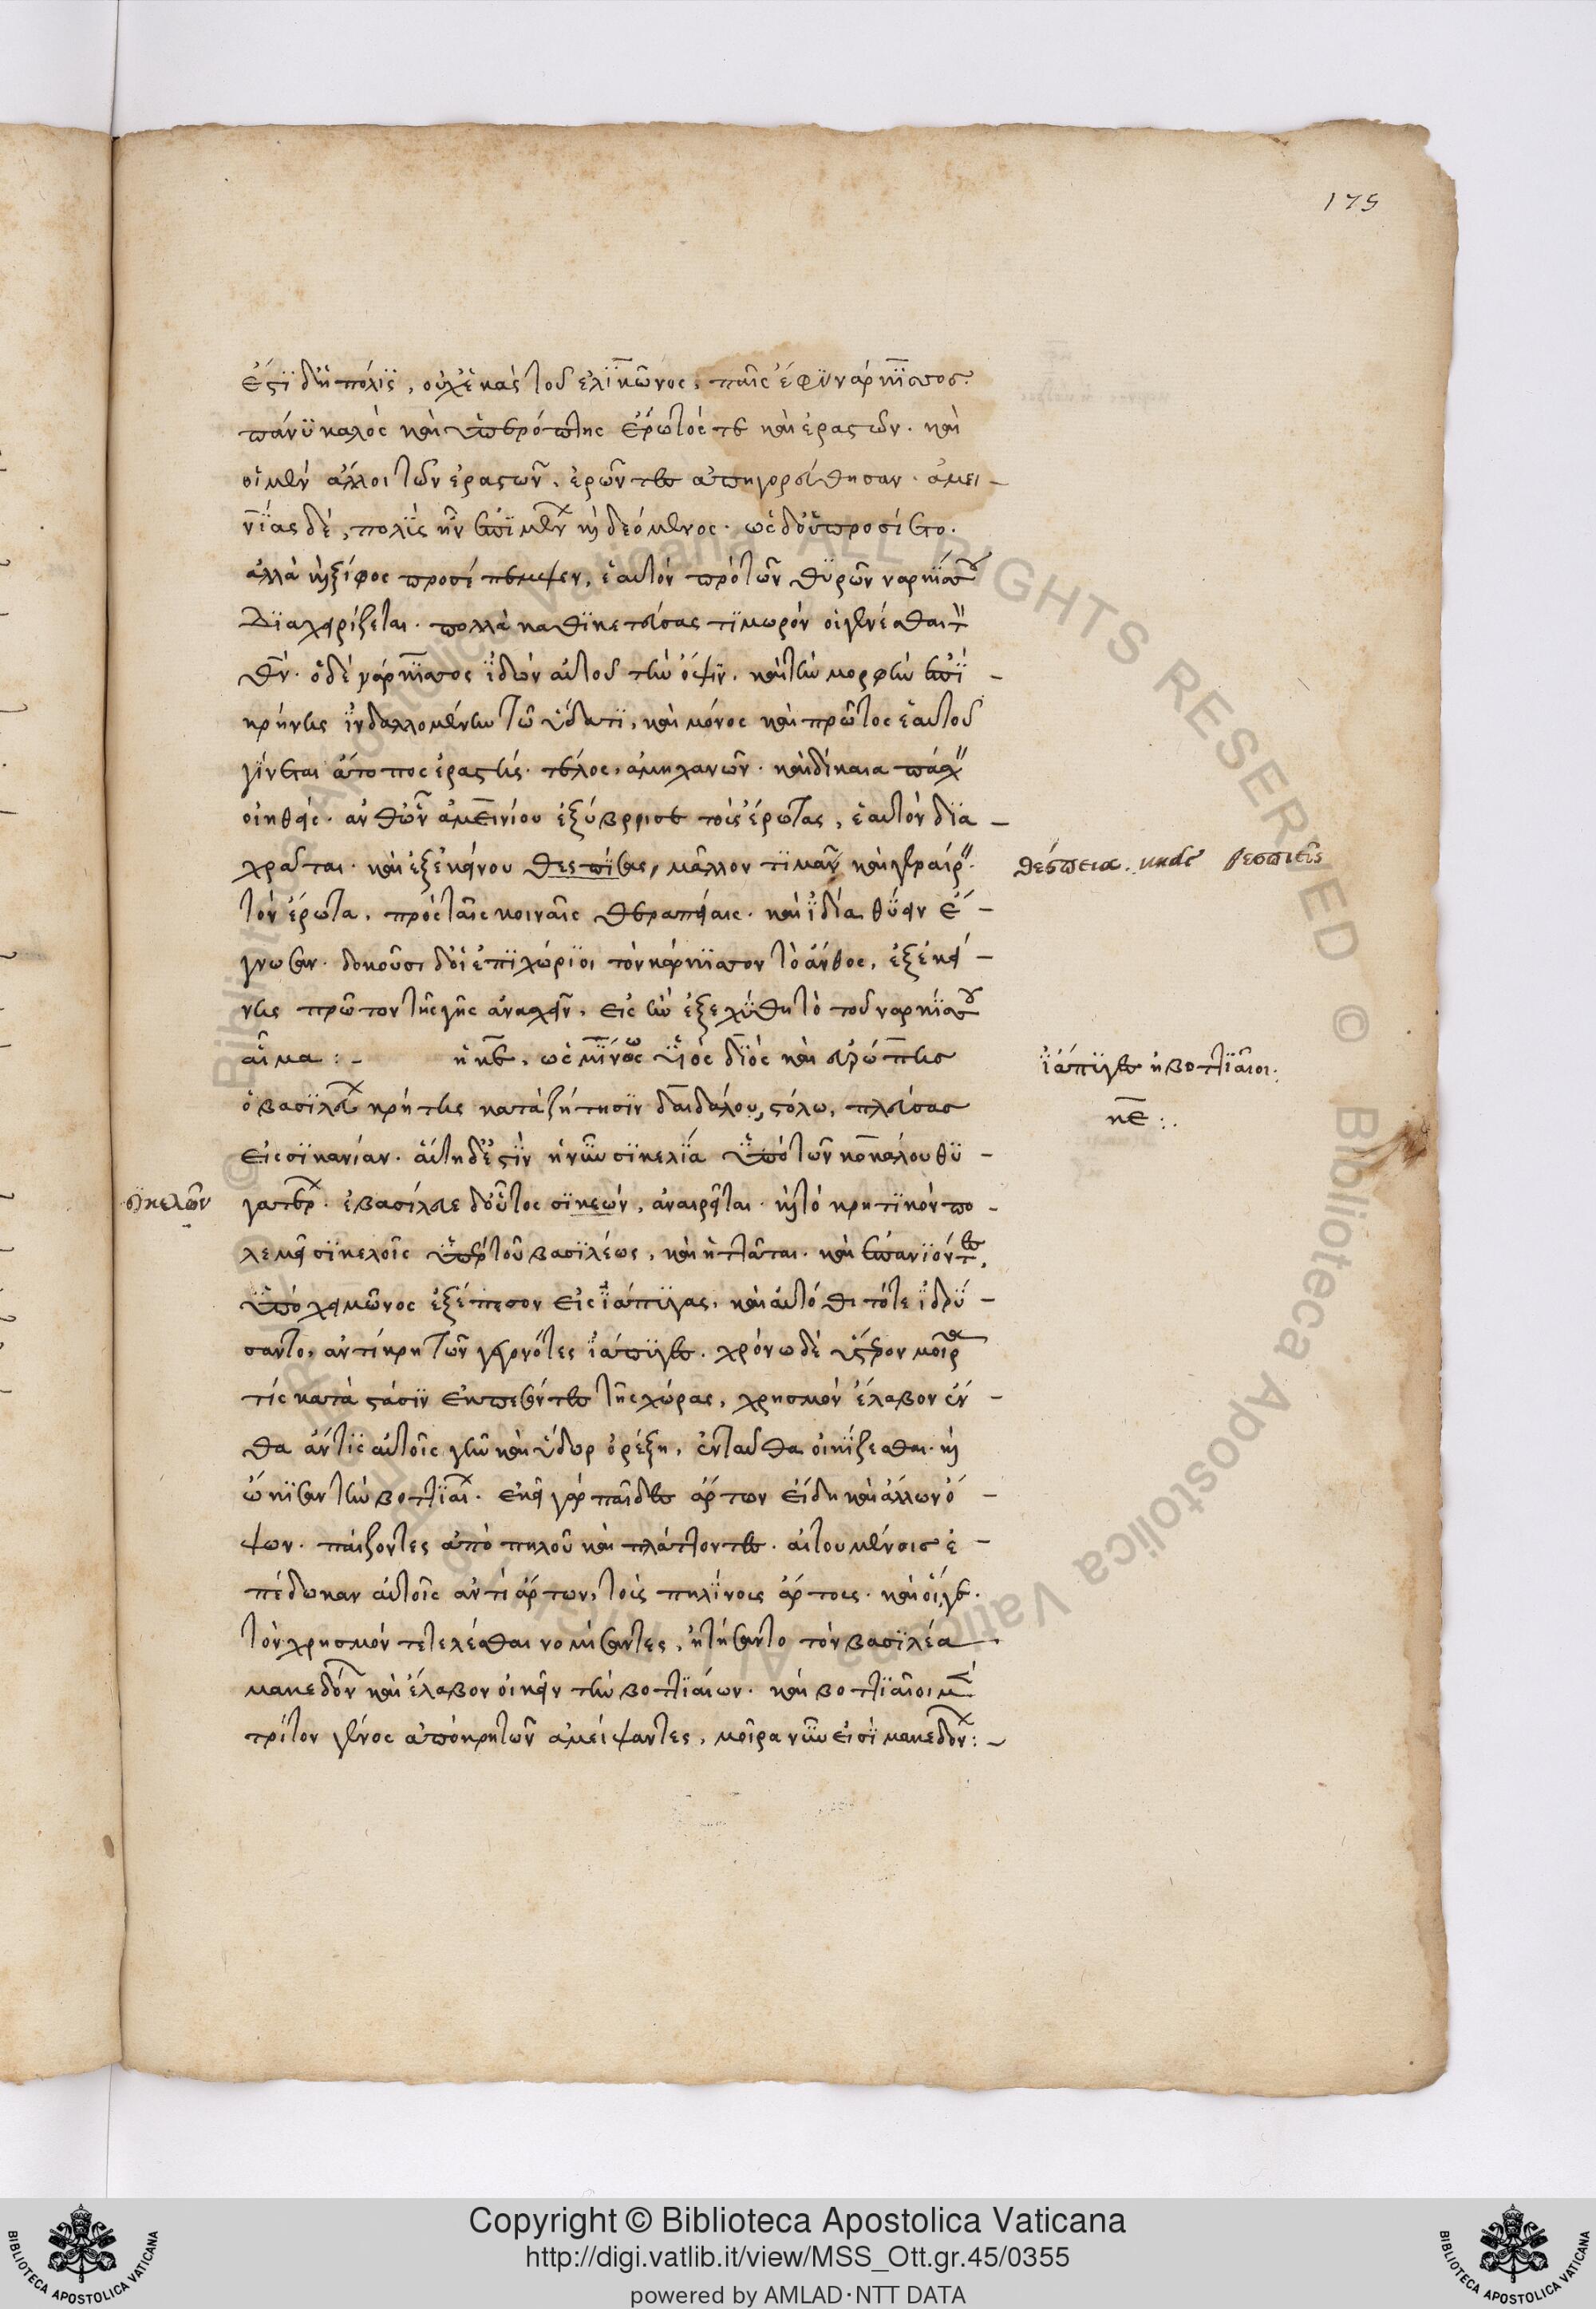 175
ἔστι δὴ πόλις, οὐχ ἑκὰς τοῦ ἑλικῶνος, παῖς ἔφυ νάρκισσος.
πάνυ καλὸς καὶ ὑπερόπτης ἔρωτός τε καὶ ἐραστῶν. καὶ
οἱ μὲν ἄλλοι τῶν ἐραστῶν, ἐρῶντες ἀπηγορεύθησαν. ἀμει-
νίας δὲ, πολὺς ἦν ἐπιμένων καὶ δεόμενος. ὡς δ' οὐ προσίετο.
ἀλλὰ καὶ ξίφος προσέπεμψεν, ἑαυτὸν πρὸ τῶν θυρῶν ναρκίσσου
διαχειρίζεται. πολλὰ καθικετεύσας τιμωρόν οἱ γενέσθαι τὸν
θεόν. ὁ δὲ νάρκισσος ἰδὼν αὐτοῦ τὴν ὄψιν, καὶ τὴν μορφὴν ἐπὶ -
κρήνης ἰνδαλλομένην τῶ ὕδατι, καὶ μόνος καὶ πρῶτος ἑαυτοῦ
γίνεται ἄτοπος ἐραστής. τέλος, ἀμηχανῶν. καὶ δίκαια παθεῖν
οἰηθεὶς. ἀνθ' ὧν ἀμεινίου ἐξύβρισε τοὺς ἔρωτας, ἑαυτὸν δια-
χρᾶται. καὶ ἐξ ἐκείνου θεσπιεῖς, μᾶλλον τιμᾶν καὶ γεραίρειν
τὸν ἔρωτα, πρὸς ταῖς κοιναῖς θεραπείαις. καὶ ἰδία θύειν ἔ-
γνωσαν. δοκοῦσι δ' οἱ ἐπιχώριοι τὸν νάρκισσον τὸ ἄνθος, ἐξ ἐκεί-
νης πρῶτον τῆς γῆς ἀνασχεῖν, εἰς ἣν ἐξεχύθη τὸ τοῦ ναρκίσσου
αἷμα :- ἡ κε, ὡς μίνως υἱὸς διὸς καὶ εὐρώπης
ὁ βασιλεύων κρήτης κατὰ ζήτησιν δαιδάλου, στόλω, πλεύσας
εἰς σικανίαν. αὕτη δέ ἐστιν ἡ νῦν σικελία ὑπὸ τῶν κοκάλου θυ-
γατέρων. ἐβασίλευε δ' οὗτος σικεών, ἀναιρεῖται. καὶ τὸ κρητικὸν πο-
λεμεῖ σικελοῖς ὑπὲρ τοῦ βασιλέως, καὶ ἡττᾶται. καὶ ἐπανιόντες,
ὑπὸ χειμῶνος ἐξέπεσον εἰς ἰάπυγας, καὶ αὐτόθι τότε ἱδρύ-
σαντο, ἀντὶ κρητῶν γεγονότες ἰάπυγες. χρόνω δὲ ὕστερον μοῖρά
τις κατὰ στάσιν ἐκπεσόντες τῆς χώρας, χρησμὸν ἔλαβον ἔν-
θα ἄν τις αὐτοῖς γῆν καὶ ὕδωρ ὀρέξη, ἐνταῦθα οἰκίζεσθαι. καὶ
ὤκισαν τὴν βοττιαίων. ἐκεῖ γὰρ παῖδες ἄρτων εἴδη καὶ ἄλλων ὄ-
ψων. παίζοντες ἀπὸ πηλοῦ καὶ πλάττοντες. αἰτουμένοις ἐ-
πέδωκαν αὐτοῖς ἀντὶ ἄρτων, τοὺς πηλίνους ἄρτους. καὶ οἵ γε.
τὸν χρησμὸν τετελέσθαι νομίσαντες, ἠτήσαντο τὸν βασιλέα
μακεδόνων καὶ ἔλαβον οἰκεῖν τὴν βοττιαίων. καὶ βοττιαῖοι μὲν
τρίτον γένος ἀπὸ κρητῶν ἀμείψαντες, μοῖρα νῦν εἰσὶ μακεδόνων :-
θέσπεια. unde θεσπιεῖς
ἰάπυγες ἢ βοττιαῖοι.
κε :.
σικελῶν
Copyright © Biblioteca Apostolica Vaticana
http://digi.vatlib.it/view/MSS_Ott.gr.45/0355
powered by AMLAD·NTT DATA
BIBLIOTECA APOSTOLICA VATICANA
BIBLIOTECA APOSTOLICA VATICANA
© Biblioteca Apostolica Vaticana ALL RIGHTS RESERVED © Biblioteca Apostolica Vaticana ALL RIGHTS RESERVED